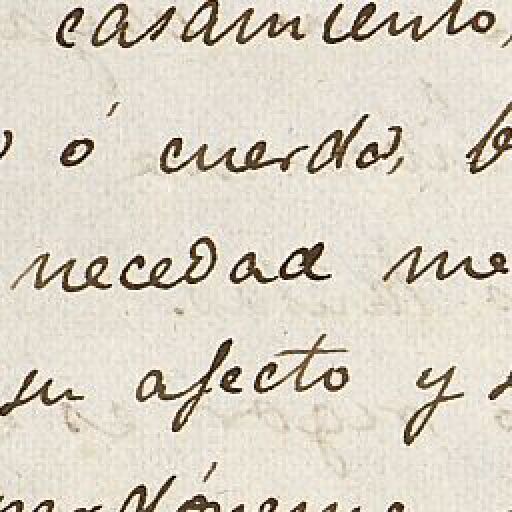 casamiento,
ó cuerdo,
necedad me
su afecto y